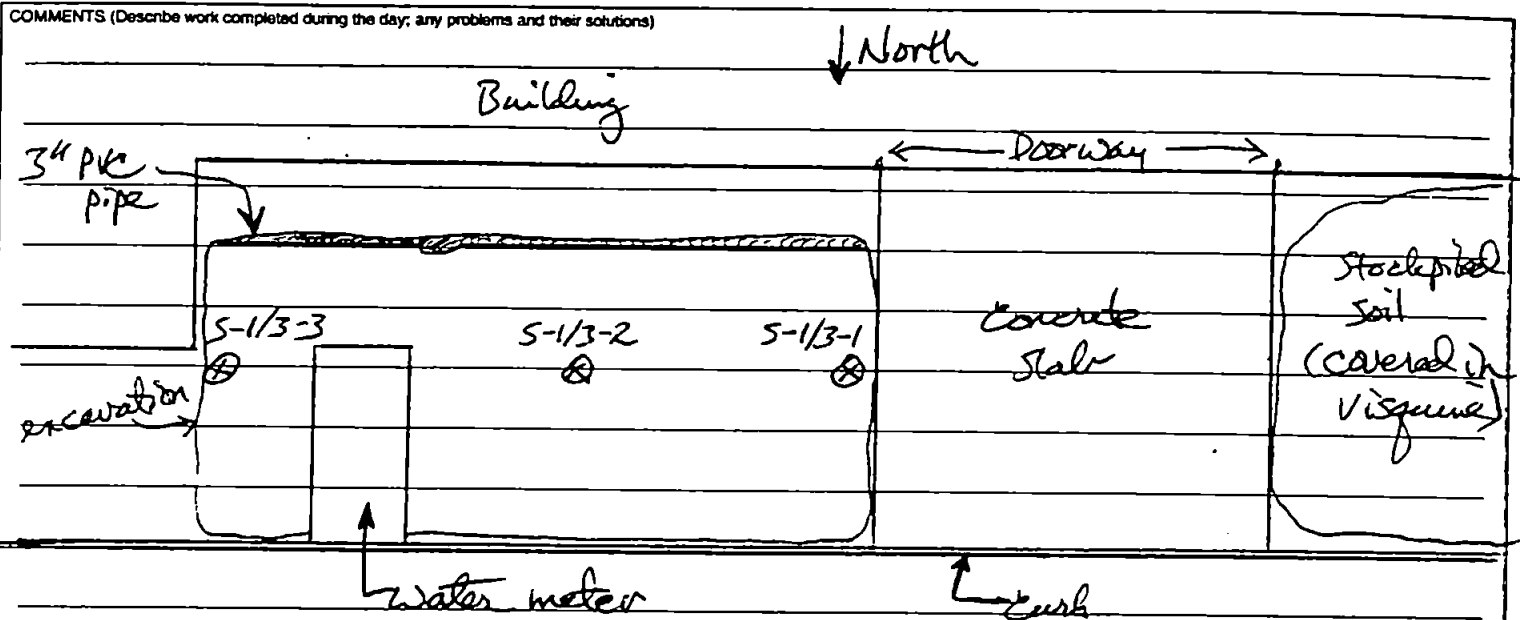 COMMENTS (Describe work completed during the day; any problems and their solutions)
North
Building
Doorway
3" PVC
pipe
S-1/3-3
S-1/3-2
S-1/3-1
Concrete
slab
Stockpiled
soil
(covered in
visqueen)
excavation
water meter
curb